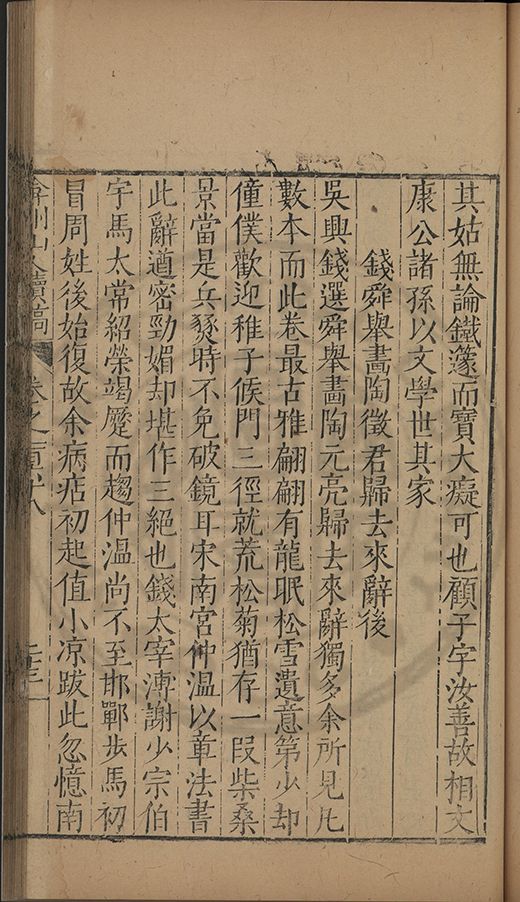 其姑無論鐵篴而寶大癡可也顧子字汝善故相文
康公諸孫以文學世其家
錢舜舉畫陶徵君歸去來辭後
吳興錢選舜舉畫陶元亮歸去來辭獨多余所見凡
數本而此卷最古雅翩翩有龍眠松雪遺意第少却
僮僕歡迎稚子候門三徑就荒松菊猶存一段柴桑
景當是兵燹時不免破鏡耳宋南宮仲温以章法書
此辭遒密勁媚却堪作三絕也錢太宰溥謝少宗伯
宇馬太常紹榮竭蹷而趨仲温尚不至邯鄲步馬初
冒周姓後始復故余病店初起值小凉跋此忽憶南
弇州山人續稿 卷之一百六十八